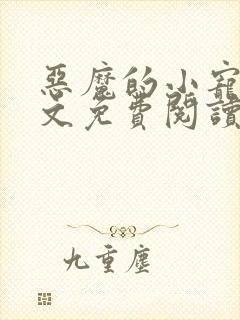 惡魔的小寵
文免費閱讀
九重塵